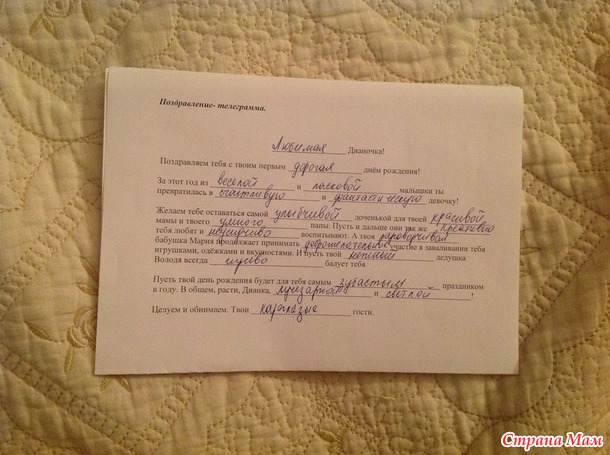 Поздравление- телеграмма.
Любимая Дианочка!
Поздравляем тебя с твоим первым дорогая днём рождения!
За этот год из веселой и толковой малышки ты
превратилась в счастливую и фантастическую девочку!
Желаем тебе оставаться самой улыбчивой доченькой для твоей красивой
мамы и твоего умного папы. Пусть и дальше они так же креативно
тебя любят и нышливо воспитывают. А твоя разговорчивая
бабушка Мария продолжает принимать доброжелательное участие в заваливании тебя
игрушками, одёжками и вкусностями. И пусть твой нежный дедушка
Володя всегда игриво балует тебя.
Пусть твой день рождения будет для тебя самым зубастым праздником
в году. В общем, расти, Дианка, лучезарной и светлой !
Целуем и обнимаем. Твои кареглазые гости.
Страна Мам